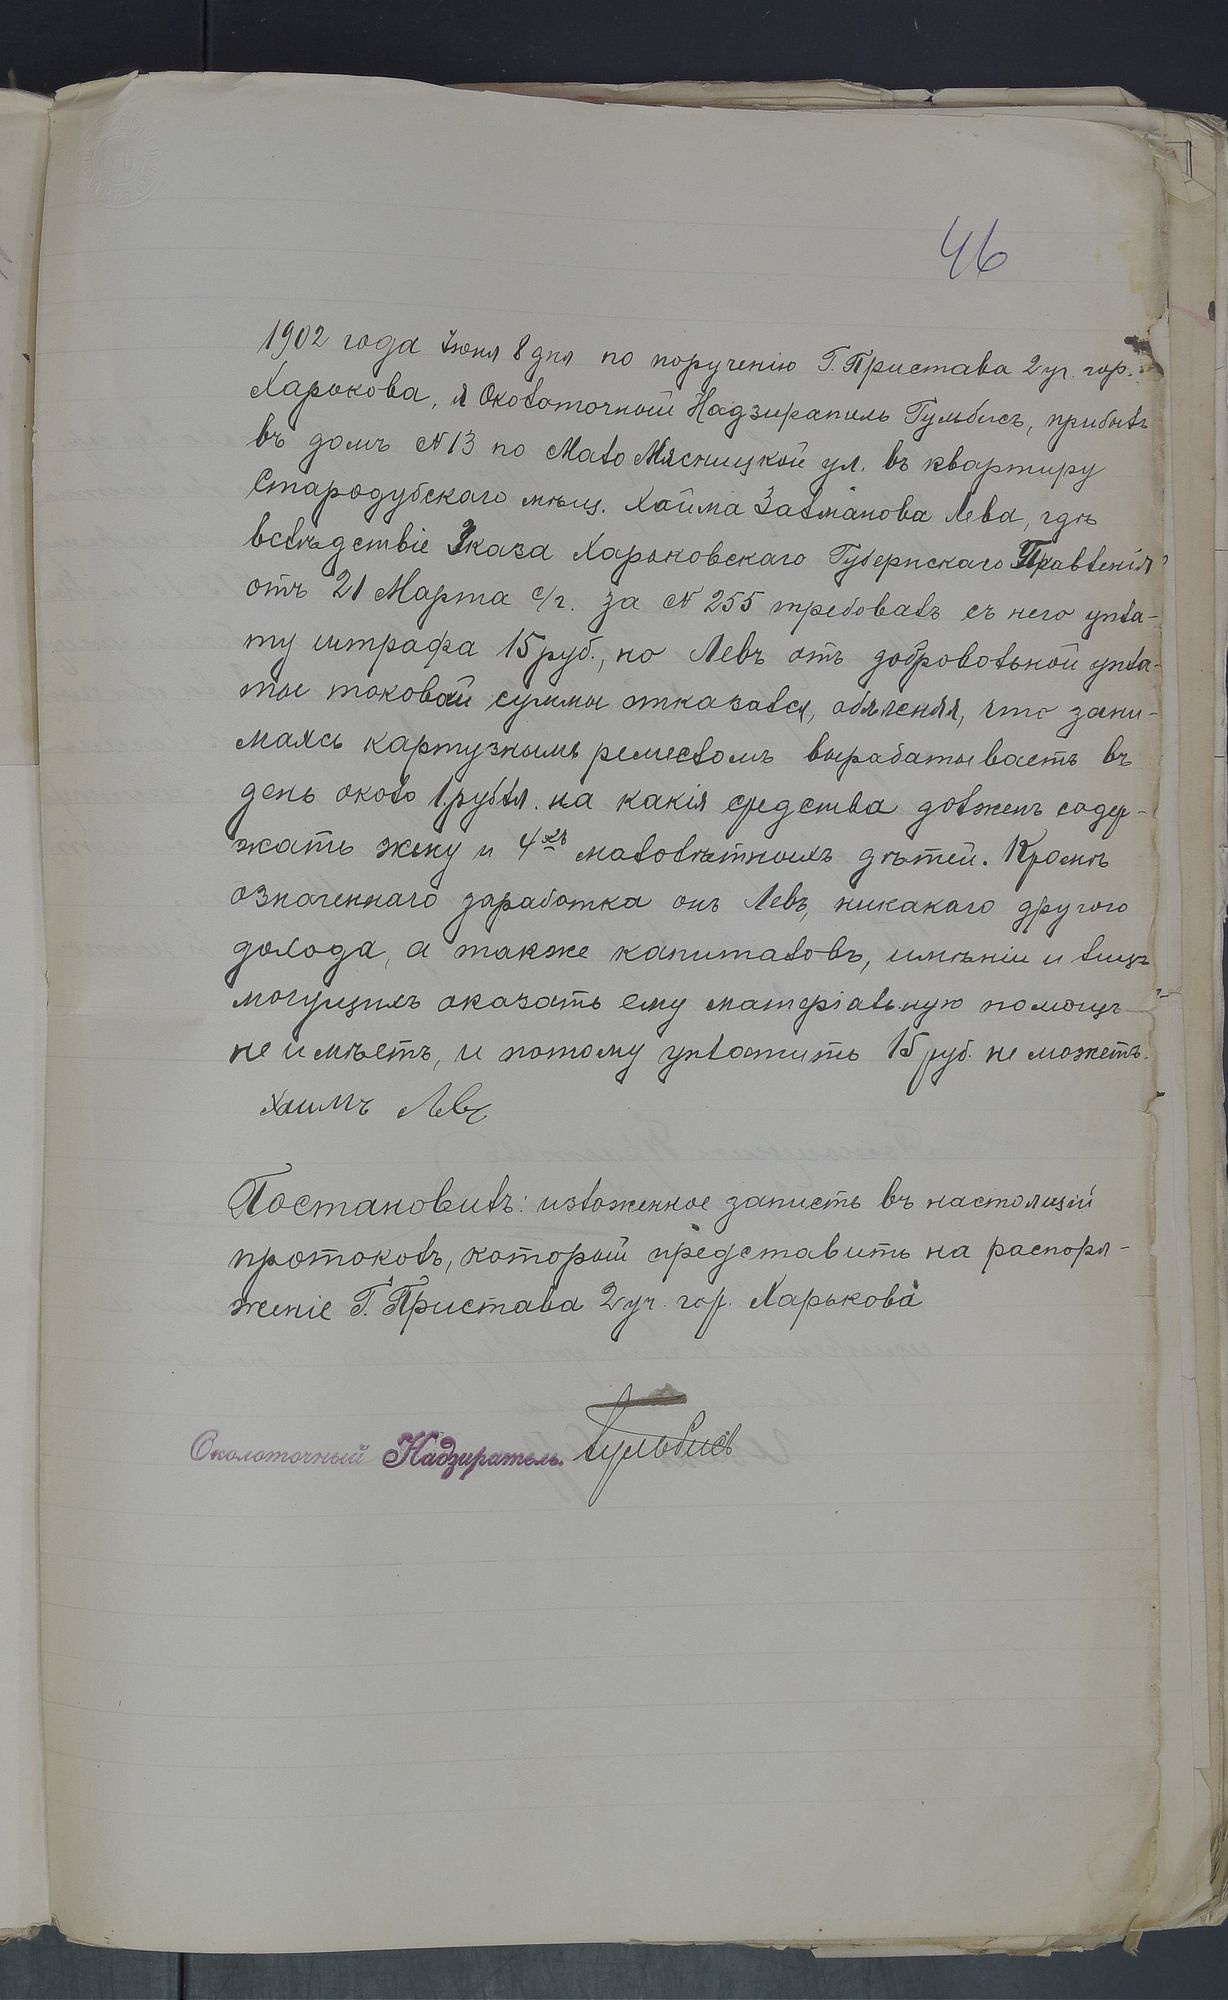 46
1902 года Іюня 8 дня по порученію Г. Пристава 2 уч. гор.
Харькова, я Околоточный Надзиратель Гульбисъ, прибылъ
въ домъ № 13 по Мало Мясницкой ул. въ квартиру
Стародубскаго мѣщ. Хайма Залманова Лева, гдѣ
вслѣдствіе Указа Харьковскаго Губернскаго Правленія
отъ 21 Марта с/г. за № 255 требовалъ съ него упла-
ту штрафа 15 руб., но Левъ отъ добровольной упла-
ты таковой суммы отказался, объясняя, что зани-
маясь картузнымъ ремесломъ вырабатываетъ въ
день около 1 рубля. на какія средства долженъ содер-
жать жену и 4хъ малолѣтныхъ дѣтей. Кромѣ
означеннаго заработка онъ Левъ, никакаго другого
дохода, а также капиталовъ, имѣній и лицъ
могущихъ оказать ему матеріальную помощь
не имѣетъ, и потому уплатить 15 руб. не можетъ.
Хаимъ Левъ
Постановилъ: изложенное записть въ настоящій
протоколъ, который представить на распоря-
женіе Г. Пристава 2 уч. гор. Харькова
Околоточный Надзиратель. Гульбисъ